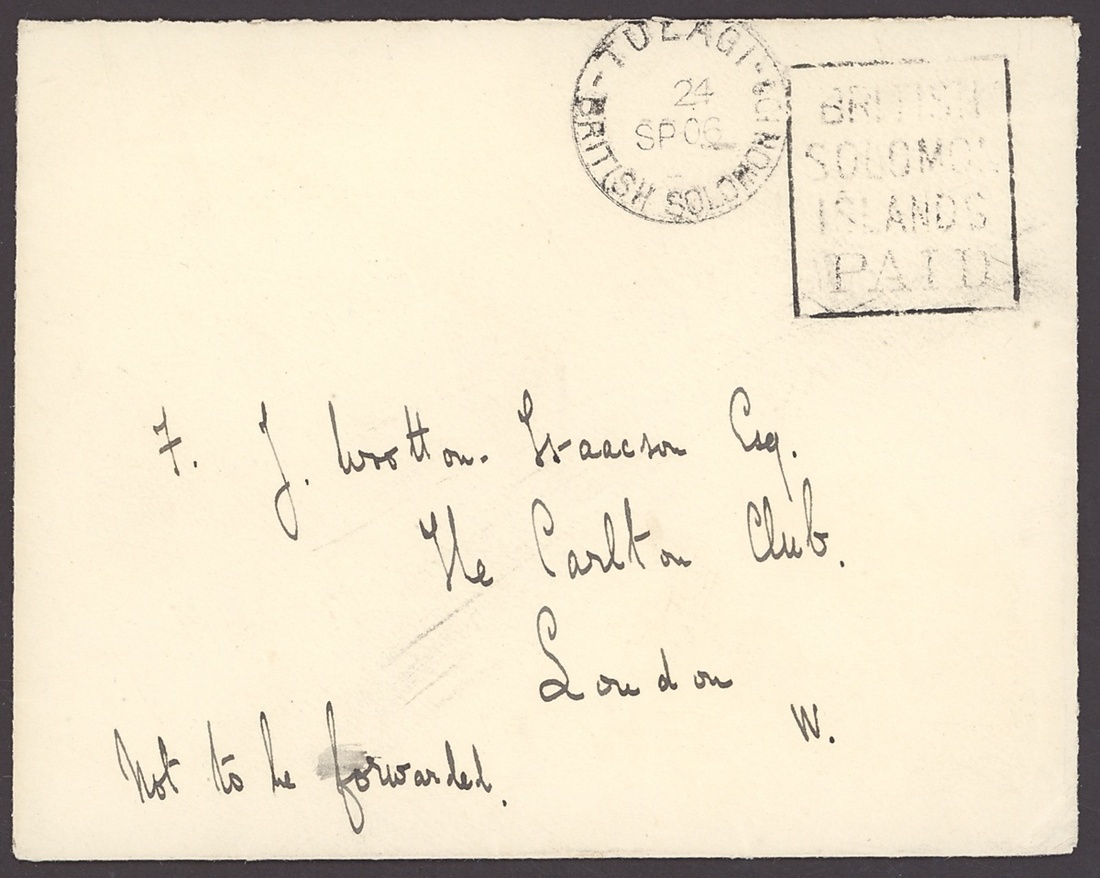 TULAGI
BRITISH SOLOMON IS
24
SP 06
BRITISH
SOLOMON
ISLANDS
PAID
F. J. Wootton-Isaacson Esq.
The Carlton Club.
London
W.
Not to be forwarded.